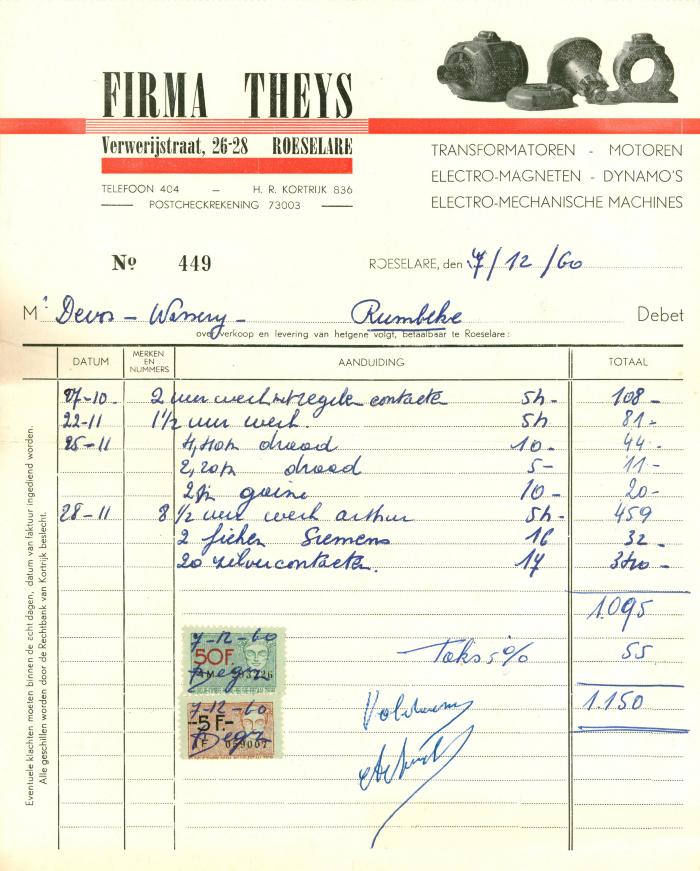 FIRMA THEYS
Verwerijstraat, 26-28 ROESELARE
TELEFOON 404 — H. R. KORTRIJK 836
POSTCHECKREKENING 73003
TRANSFORMATOREN - MOTOREN
ELECTRO-MAGNETEN - DYNAMO'S
ELECTRO-MECHANISCHE MACHINES
Nº 449
ROESELARE, den 7/12/60
Mr Devos - Rumbeke Debet
over verkoop en levering van hetgene volgt, betaalbaar te Roeselare :
DATUM MERKEN EN NUMMERS AANDUIDING TOTAAL
27-10- 2 uur werk contacte 54- 108-
22-11 1 1/2 uur werk. 54 81-
25-11 4,40m draad 10- 44-
2,20m draad 5- 11-
2m gaine 10- 20-
28-11 8 1/2 uur werk arthur 54- 459
2 fichen Siemens 16 32-
20 zilvercontacten. 17 340-
1.095
Taks 5% 55
1.150
7-12-60
50F.
7-12-60
-5F.-
059007
Voldaan
Eventuele klachten moeten binnen de acht dagen, datum van faktuur ingediend worden.
Alle geschillen worden door de Rechtbank van Kortrijk beslecht.